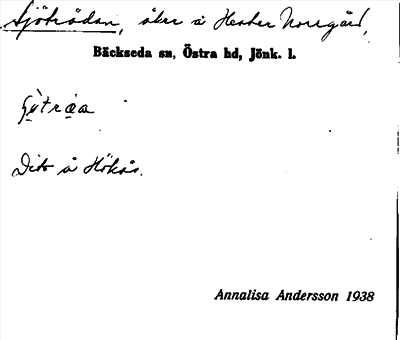 Sjöträdan, åker å Hester Norrgård,
Bäckseda sn, Östra hd, Jönk. l.
Dito å Hökås.
Annalisa Andersson 1938